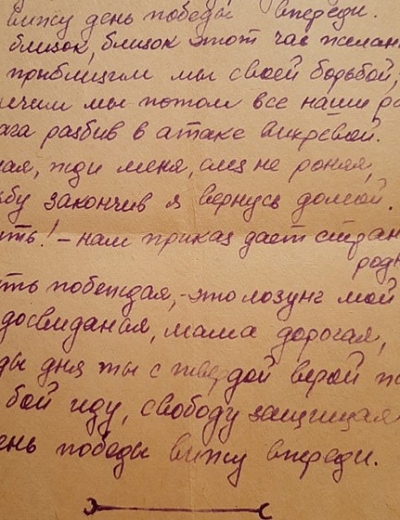 вижу день победы впереди.
близок, близок этот час желан
приблизим мы своей борьбой,
лечим мы потом все наши ра
ага разбив в атаке вихревой.
ная, жди меня, слез не роняя,
ьбу закончив я вернусь домой.
ить! – нам приказ дает стран
родн
ть побеждая,-это лозунг мой
досвиданая, мама дорогая,
ды дня ты с твердой верой
бой иду, свободу защищая
ень победы вижу впереди.